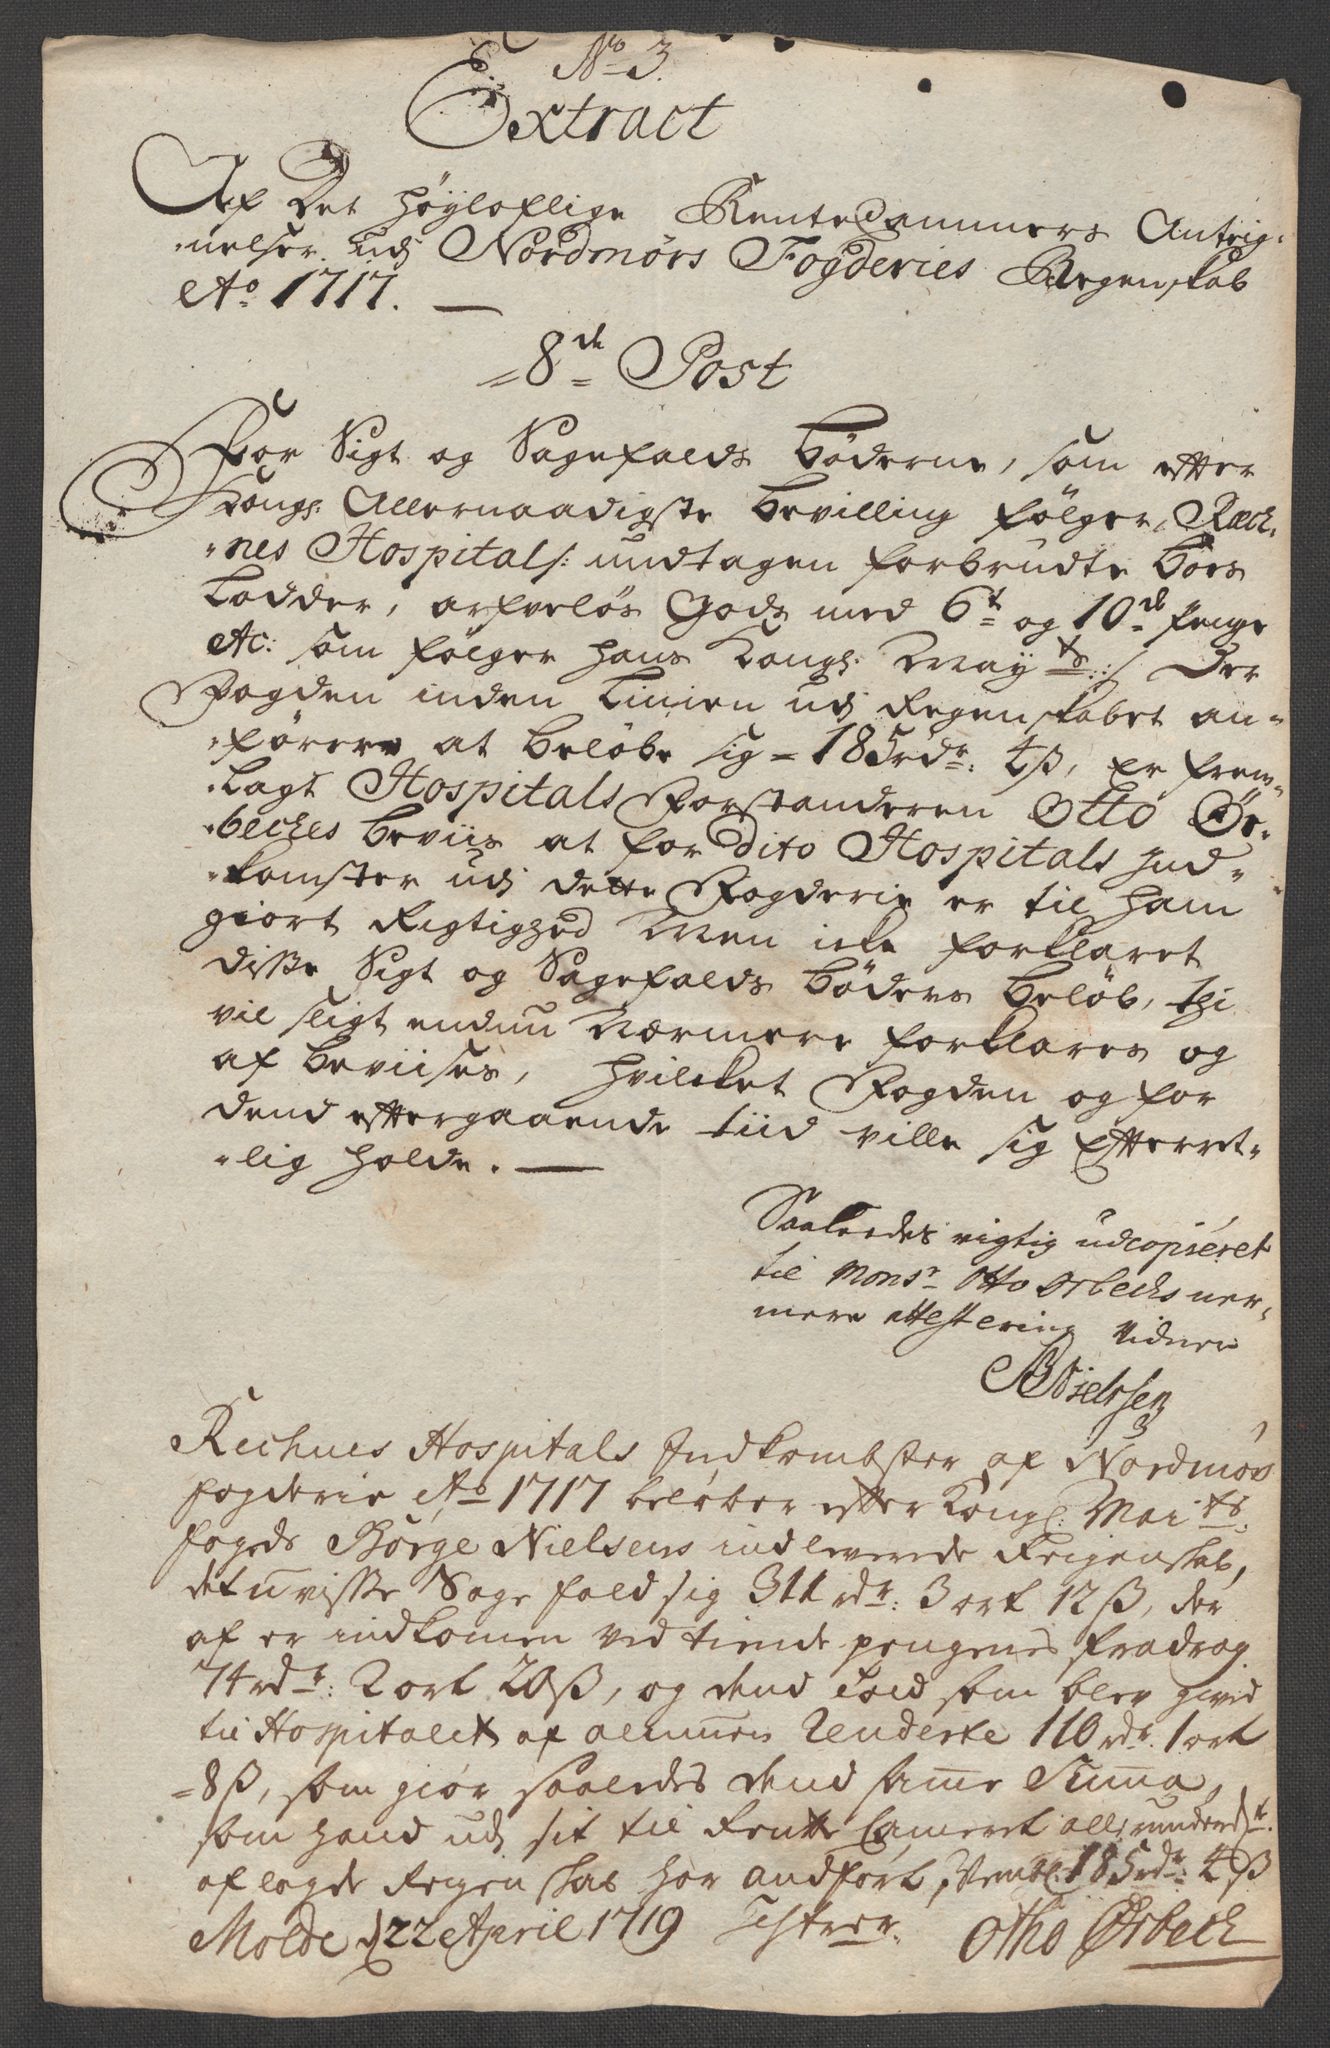 No 3.
Extract
Af Det höyloflige RenteCammers Anteig-
nelser udj Nordmørs Fogderies Regenskab
Ao 1717.
8de Post
For Sigt og Sagefalds Böderne, som efter
Kongl: Allernaadigste bevilling fölger, Reck-
nes Hospital /: undtagen forbrudte boes
Lodder, arfvelös Gods med 6te og 10de penge
&c: som fölger hans Kongl: Mayts :/ Der
Fogden inden Linien udj Regenskabet an-
förer at beløbe sig = 185 rdr: 4 ß, er frem-
lagt Hospitals Forstanderen Otto Ør-
beches beviis at for dito Hospitals Ind-
komster udj dette Fogderie er til ham
giort Rigtighed Men icke forklaret
disse Sigt og Sagefalds böders beløb, thi
vil sligt endnu Nærmere forklares og
af beviises, hvilcket Fogden og for
dend eftergaaende tiid ville sig Efterret-
lig holde.
Saaledes rigtig udcopieret
til Monsr Otto Ørbechs ner-
mere attestering Vidner
BNielssen
Rechnes Hospitals Indkombster af Nordmørs
fogderie Ao 1717 beløber efter Kongl: Maits
fogeds Børge Nielsens indleverede Reigenskab,
det uvisse Sagefald sig 311 rdr: 3 ort 12 ß, der
af er indkomen ved tiende pengenes fradrag
74 rdr: 2 ort 20 ß, og dend told som blev gived
til Hospitalet af almuen 110 rdr. 1 ort
8 ß, som giør saaledes dend samme Summa,
som hand udj sit til Rentte Cameret allerunderdst.
aflagde Reigenskab har andført, Nembl: 185 rdr: 4 ß
Molde d 22 April 1719 Testerer.
Otho Ørbech